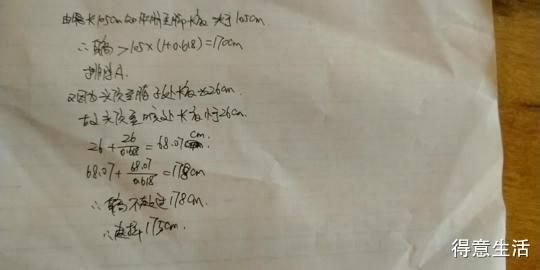 由腿长105cm知肚脐至脚长度大于105cm.
∴身高>105×(1+0.618)=170cm
排除A.
又因为头顶至脖子处长度为26cm
故头顶至咽喉处长度小于26cm.
26+26/0.618=68.07cm.
68.07+68.07/0.618=178cm
∴身高不超过178cm.
∴选择175cm.
得意生活